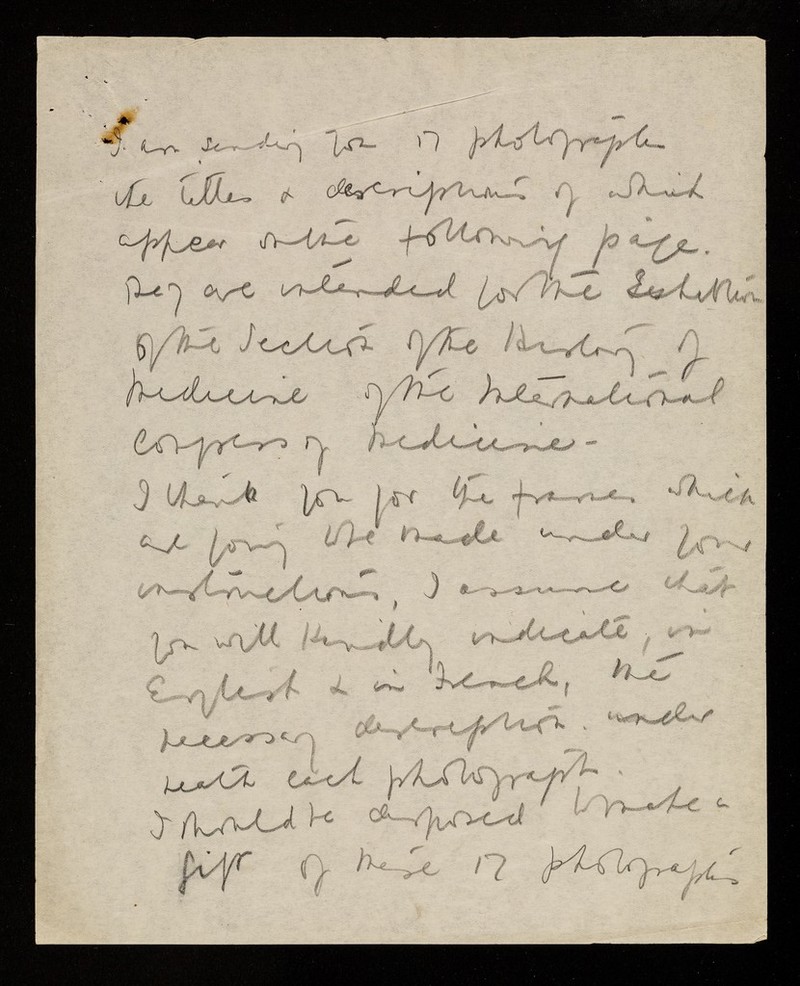 I am sending you 17 photographs
the titles & descriptions of which
appear on the following page.
They are intended for the Exhibition
of the Section of the History of
Medicine of the International
Congress of Medicine -
I thank you for the frames which
are going to be made under your
instructions, I assume that
you will kindly indicate, in
English & in French, the
necessary description under
neath each photograph.
I should be disposed to make a
gift of these 17 photographs